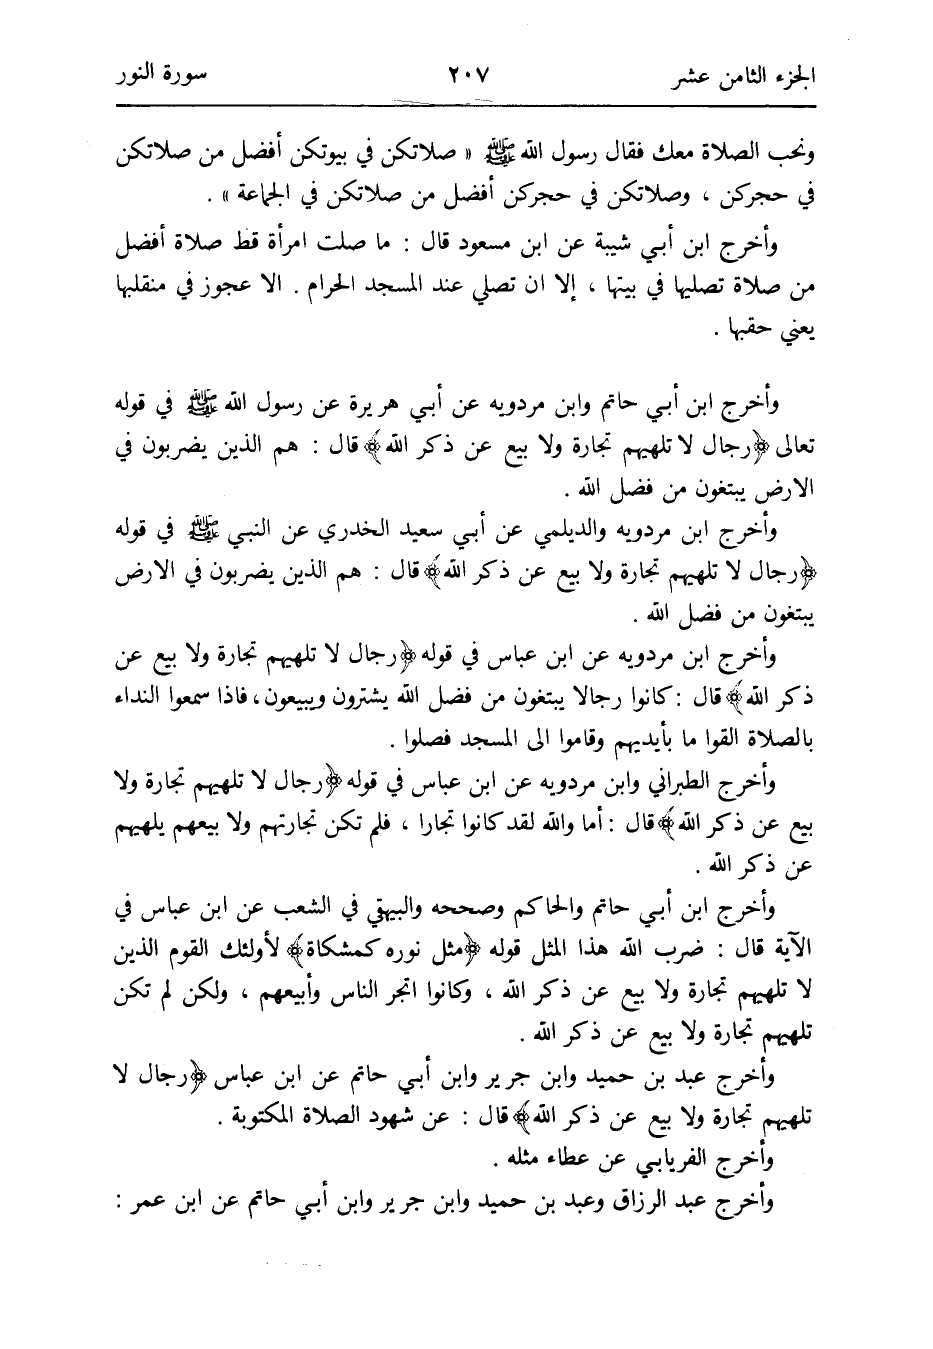 الجزء الثامن عشر ٢٠٧ سورة النور
ونحب الصلاة معك فقال رسول الله ﷺ « صلاتكن في بيوتكن أفضل من صلاتكن
في حجركن ، وصلاتكن في حجركن أفضل من صلاتكن في الجماعة » .
وأخرج ابن أبي شيبة عن ابن مسعود قال : ما صلت امرأة قط صلاة أفضل
من صلاة تصليها في بيتها ، إلا ان تصلي عند المسجد الحرام . الا عجوز في منقلبها
يعني حقبها .
وأخرج ابن أبي حاتم وابن مردويه عن أبي هريرة عن رسول الله ﷺ في قوله
تعالى ﴿رجال لا تلهيهم تجارة ولا بيع عن ذكر الله﴾ قال : هم الذين يضربون في
الارض يبتغون من فضل الله .
وأخرج ابن مردويه والديلمي عن أبي سعيد الخدري عن النبي ﷺ في قوله
﴿رجال لا تلهيهم تجارة ولا بيع عن ذكر الله﴾ قال : هم الذين يضربون في الارض
يبتغون من فضل الله .
وأخرج ابن مردويه عن ابن عباس في قوله ﴿رجال لا تلهيهم تجارة ولا بيع عن
ذكر الله﴾ قال : كانوا رجالا يبتغون من فضل الله يشترون ويبيعون ، فاذا سمعوا النداء
بالصلاة القوا ما بأيديهم وقاموا الى المسجد فصلوا .
وأخرج الطبراني وابن مردويه عن ابن عباس في قوله ﴿رجال لا تلهيهم تجارة ولا
بيع عن ذكر الله﴾ قال : أما والله لقد كانوا تجارا ، فلم تكن تجارتهم ولا بيعهم يلهيهم
عن ذكر الله .
وأخرج ابن أبي حاتم والحاكم وصححه والبيهقي في الشعب عن ابن عباس في
الآية قال : ضرب الله هذا المثل قوله ﴿مثل نوره كمشكاة﴾ لأولئك القوم الذين
لا تلهيهم تجارة ولا بيع عن ذكر الله ، وكانوا اتجر الناس وأبيعهم ، ولكن لم تكن
تلهيهم تجارة ولا بيع عن ذكر الله .
وأخرج عبد بن حميد وابن جرير وابن أبي حاتم عن ابن عباس ﴿رجال لا
تلهيهم تجارة ولا بيع عن ذكر الله﴾ قال : عن شهود الصلاة المكتوبة .
وأخرج الفريابي عن عطاء مثله .
وأخرج عبد الرزاق وعبد بن حميد وابن جرير وابن أبي حاتم عن ابن عمر :